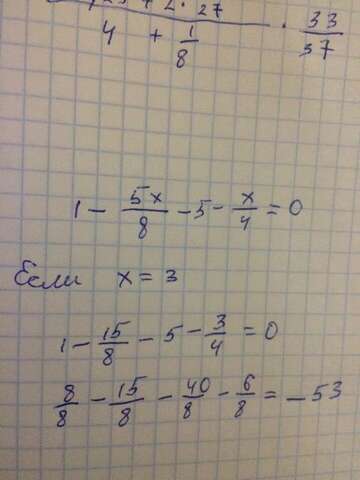 2 · 27 / 4 + 1/8 · 33/37
1 - 5x/8 - 5 - x/4 = 0
Если x = 3
1 - 15/8 - 5 - 3/4 = 0
8/8 - 15/8 - 40/8 - 6/8 = -53